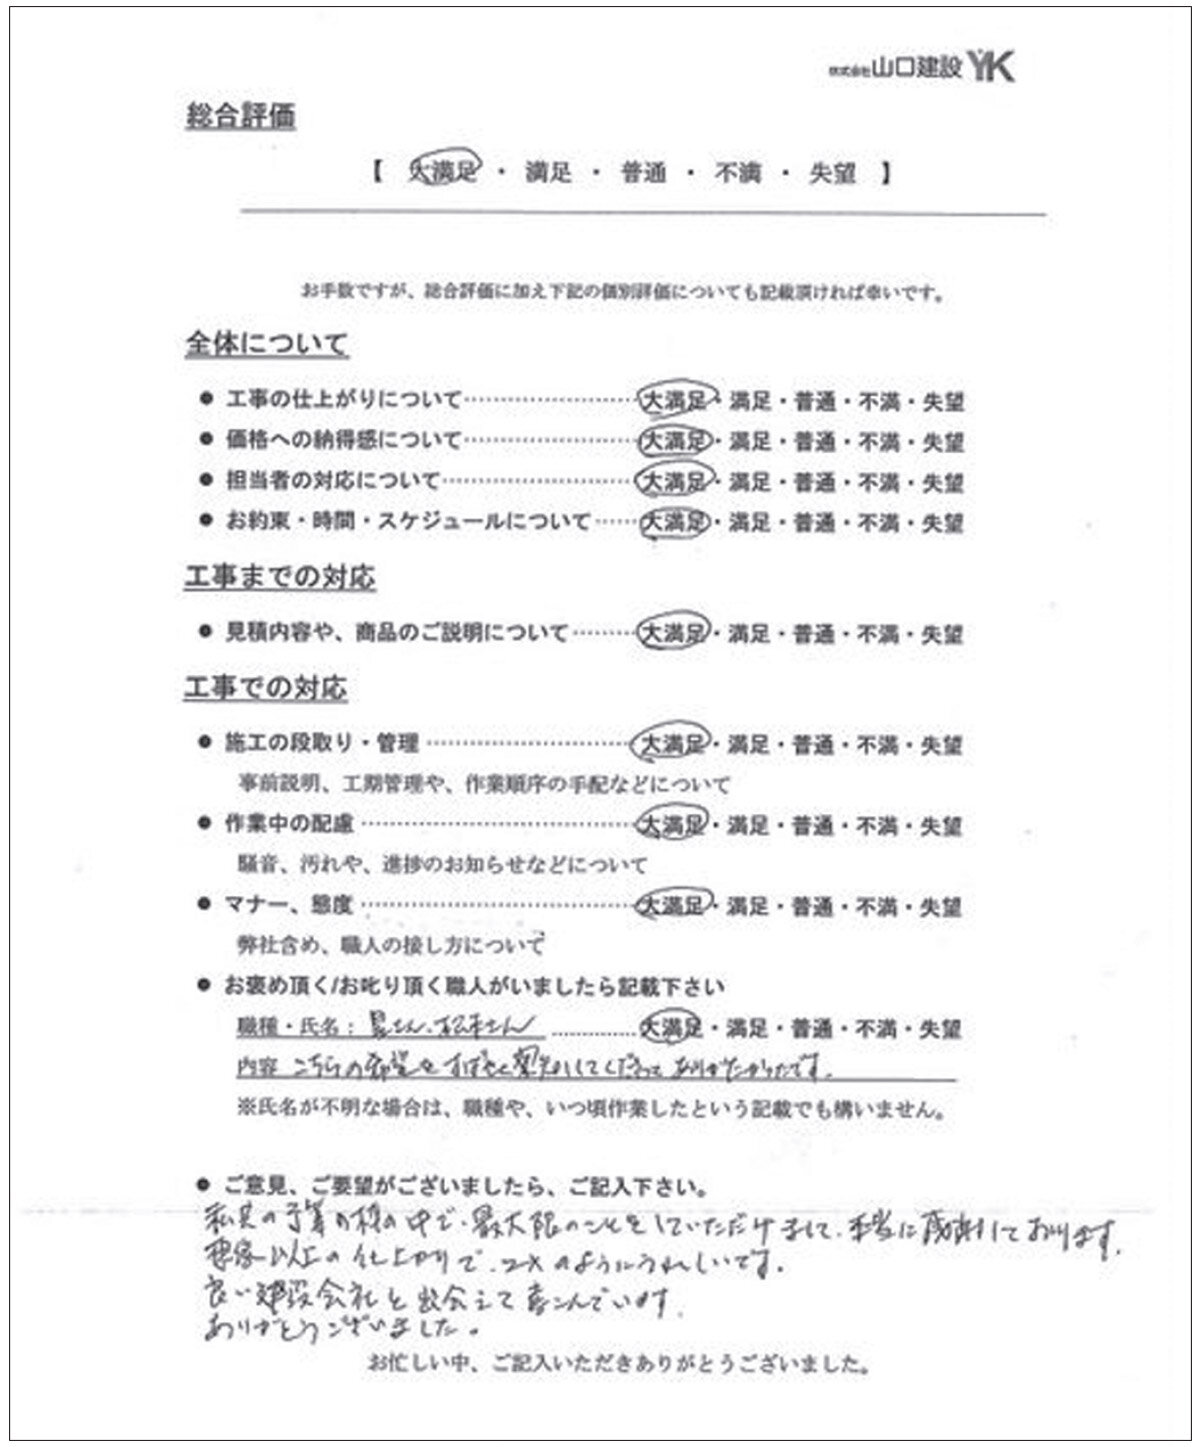 株式会社山口建設 YK
総合評価
【 大満足 ・ 満足 ・ 普通 ・ 不満 ・ 失望 】
お手数ですが、総合評価に加え下記の個別評価についても記載頂ければ幸いです。
全体について
● 工事の仕上がりについて……………………大満足・満足・普通・不満・失望
● 価格への納得感について……………………大満足・満足・普通・不満・失望
● 担当者の対応について………………………大満足・満足・普通・不満・失望
● お約束・時間・スケジュールについて……大満足・満足・普通・不満・失望
工事までの対応
● 見積内容や、商品のご説明について………大満足・満足・普通・不満・失望
工事での対応
● 施工の段取り・管理…………………………大満足・満足・普通・不満・失望
事前説明、工期管理や、作業順序の手配などについて
● 作業中の配慮…………………………………大満足・満足・普通・不満・失望
騒音、汚れや、進捗のお知らせなどについて
● マナー、態度…………………………………大満足・満足・普通・不満・失望
弊社含め、職人の接し方について
● お褒め頂く/お叱り頂く職人がいましたら記載下さい
職種・氏名：さん、松本さん…………大満足・満足・普通・不満・失望
内容 こちらの希望をすばやくしてくださってありがたかったです。
※氏名が不明な場合は、職種や、いつ頃作業したという記載でも構いません。
● ご意見、ご要望がございましたら、ご記入下さい。
私共の予算の中で、最大限のことをしていただけまして、本当に感謝しております。
以上の仕上がりで、のようにうれしいです。
良い建設会社と出会えて喜こんでいます。
ありがとうございました。
お忙しい中、ご記入いただきありがとうございました。